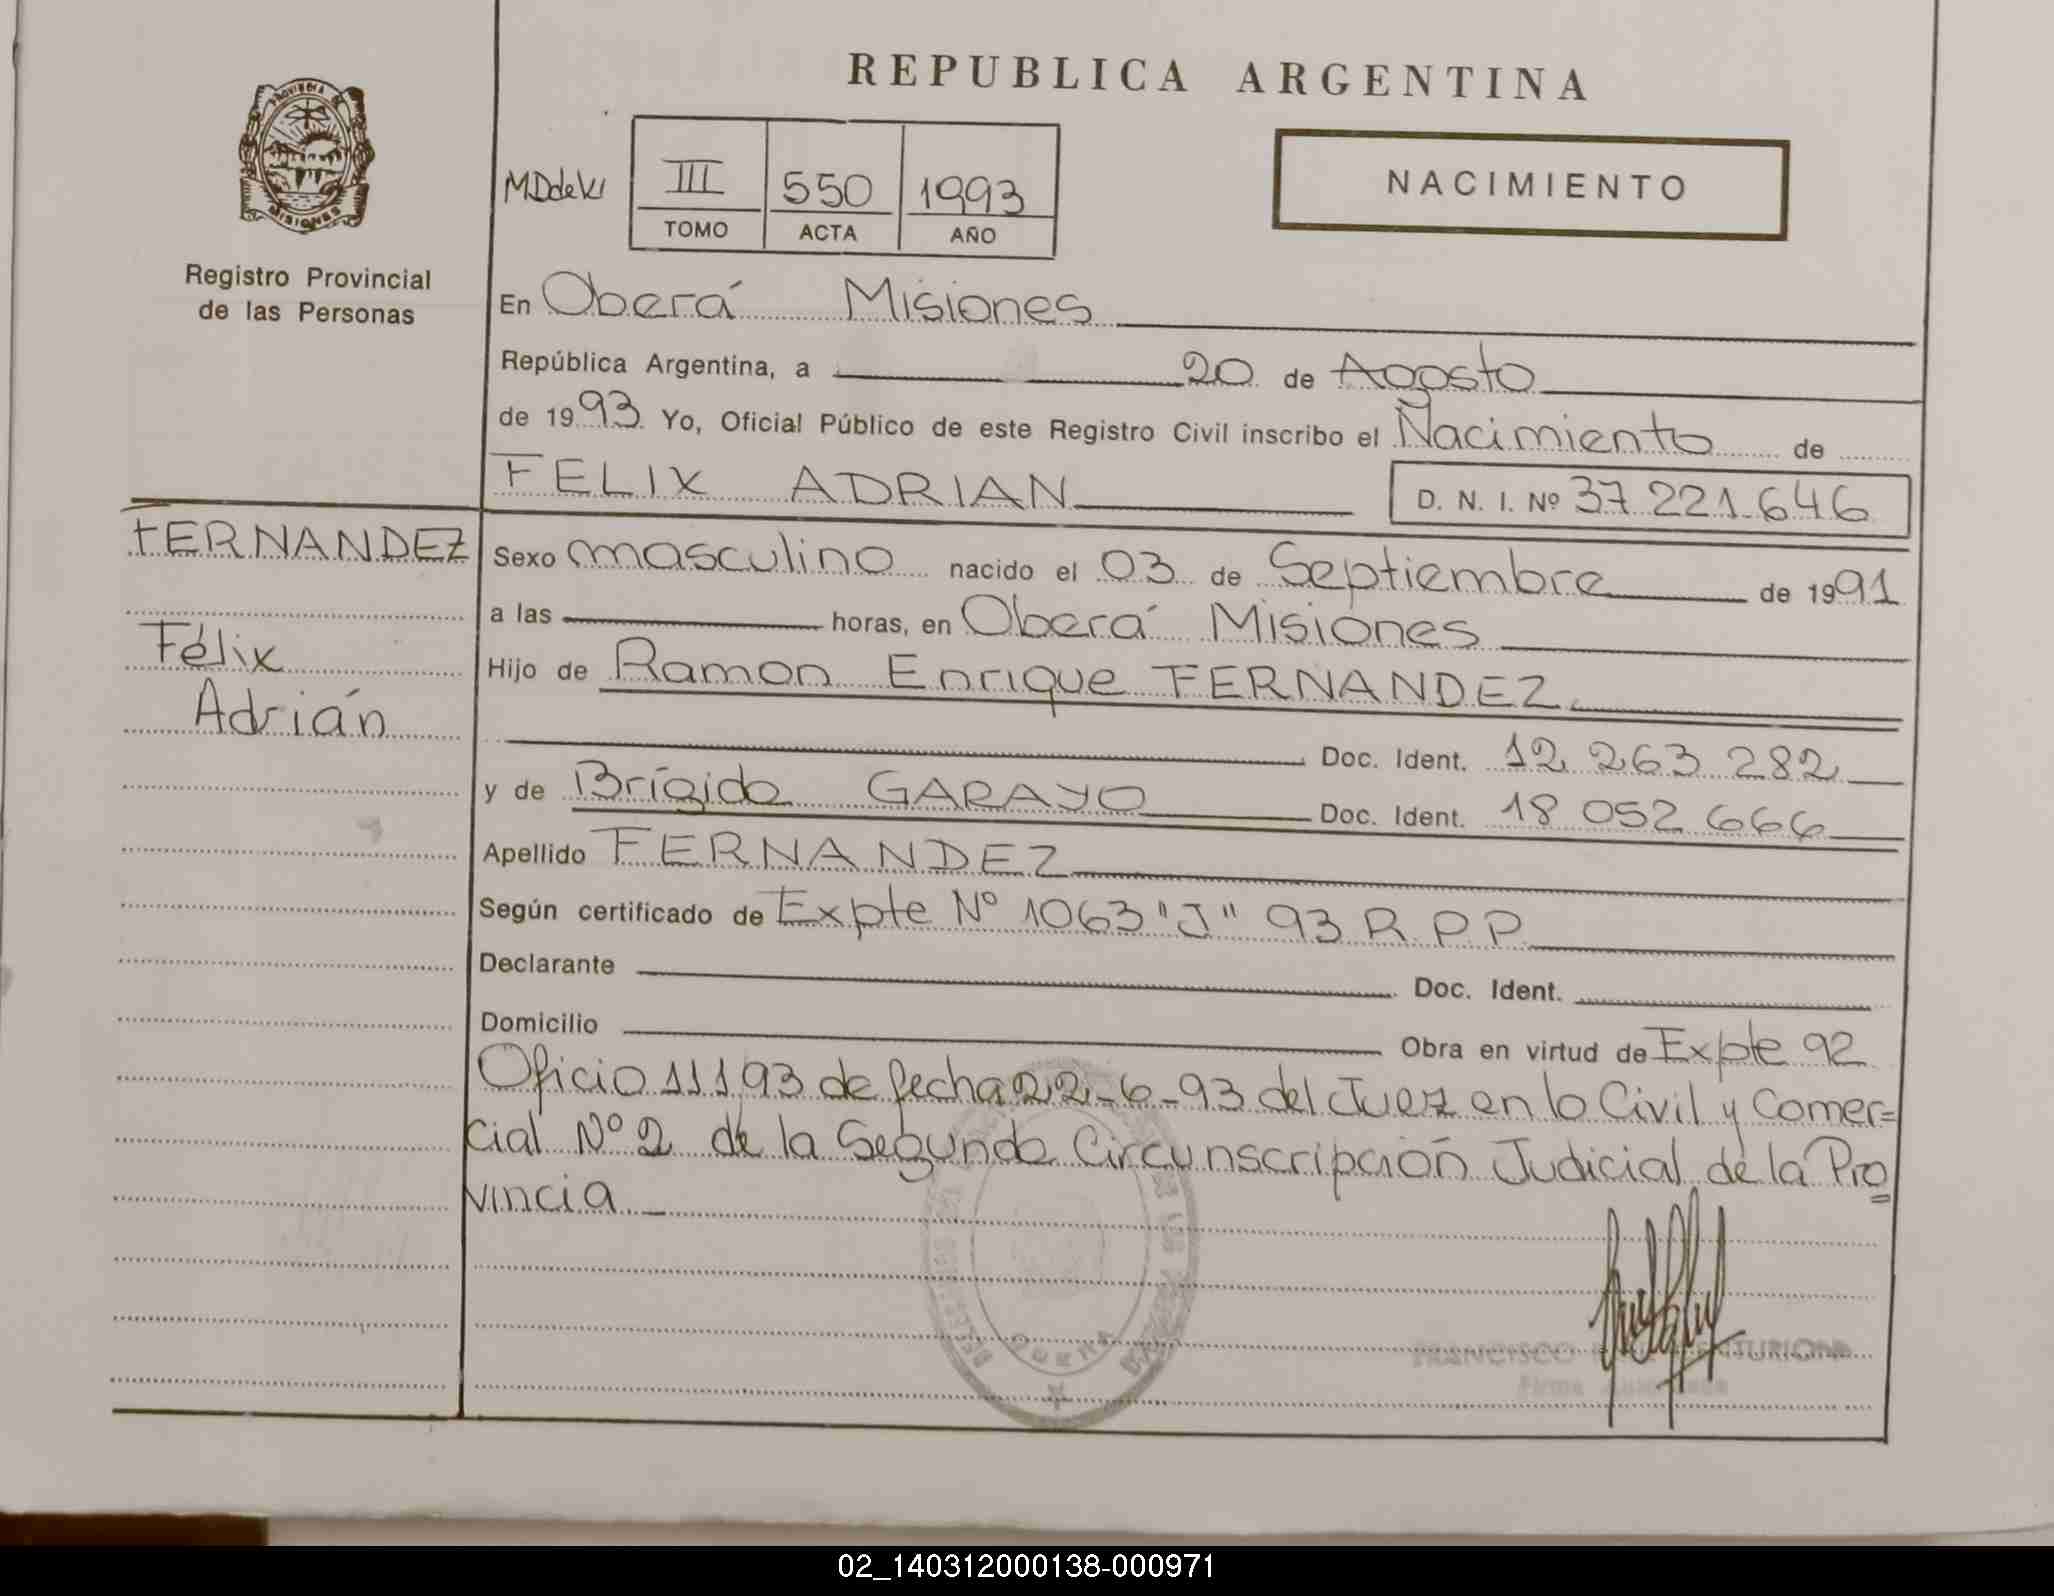 REPUBLICA ARGENTINA
PROVINCIA DE
MISIONES
Registro Provincial
de las Personas
III 550 1993
TOMO ACTA AÑO
NACIMIENTO
En Oberá Misiones
República Argentina, a 20 de Agosto
de 1993 Yo, Oficial Público de este Registro Civil inscribo el Nacimiento de
FELIX ADRIAN D. N. I. Nº 37 221 646
FERNANDEZ
Félix
Adrián
Sexo masculino nacido el 03 de Septiembre de 1991
a las horas, en Oberá Misiones
Hijo de Ramon Enrique FERNANDEZ
Doc. Ident. 12 263 282
y de Brígida GARAYO Doc. Ident. 18 052 666
Apellido FERNANDEZ
Según certificado de Expte Nº 1063 "J" 93 R.P.P.
Declarante Doc. Ident.
Domicilio Obra en virtud de Expte 92
Oficio 111 93 de fecha 22-6-93 del Juez en lo Civil y Comer=
cial Nº 2 de la Segunda Circunscripción Judicial de la Pro
vincia
FRANCISCO
Firma
02_140312000138-000971